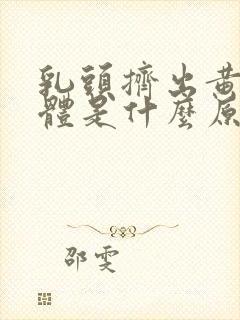 乳頭擠出黃
體是什麼原
邵雯